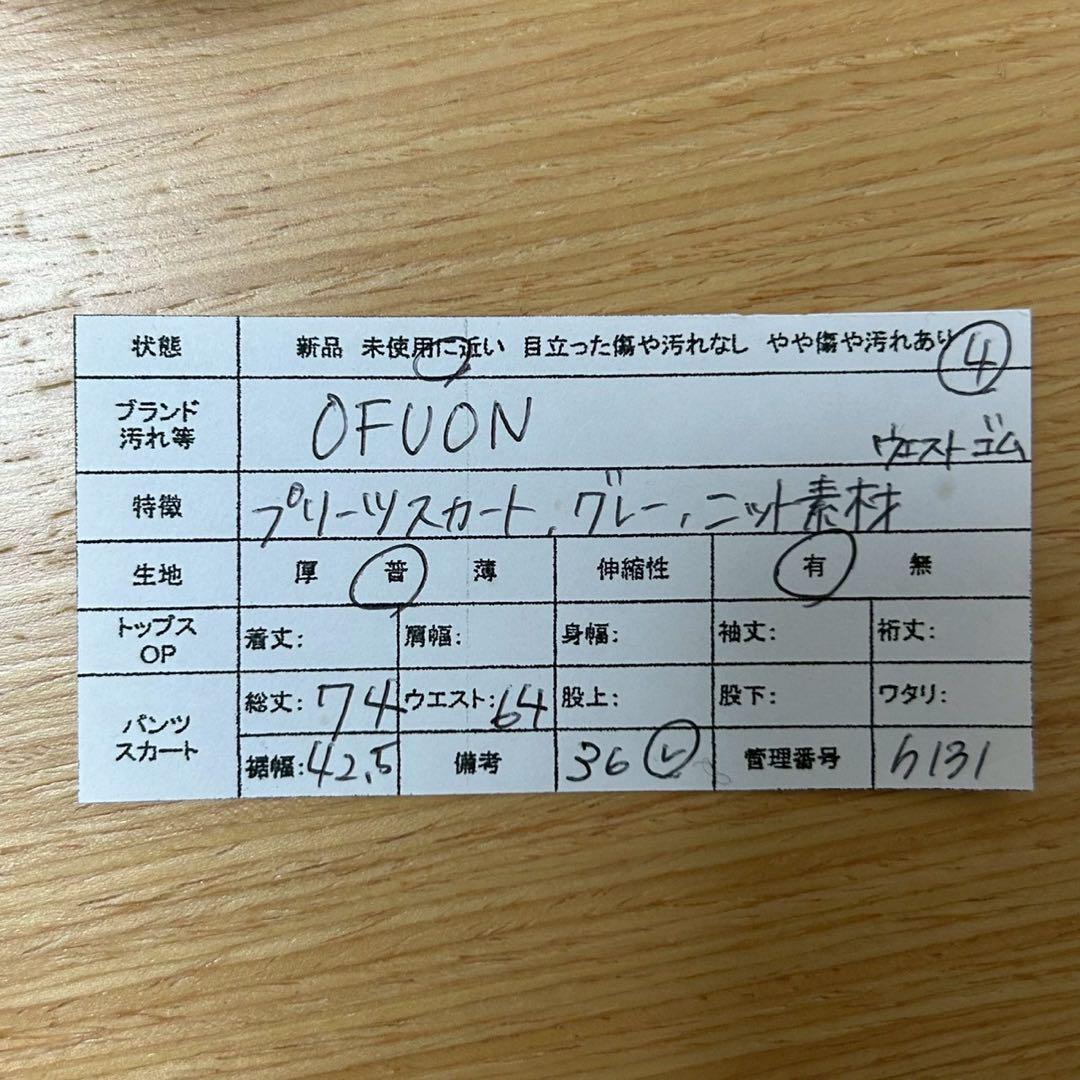 状態 新品 未使用に近い 目立った傷や汚れなし やや傷や汚れあり ④
ブランド 汚れ等 OFUON ウエストゴム
特徴 プリーツスカート、グレー、ニット素材
生地 厚 普 薄 伸縮性 有 無
トップス OP 着丈: 肩幅: 身幅: 袖丈: 裄丈:
パンツ スカート 総丈: 74 ウエスト: 64 股上: 股下: ワタリ:
裾幅: 42.5 備考 36 管理番号 h131